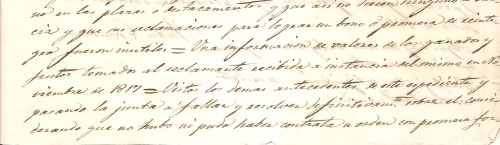 no en las plazas o destacamentos y que así no hicieron ninguno a
cia y que sus reclamaciones para lograr un bono o promesa de recinta
gro fueron inutiles = Una informacion de valores de los ganados y
frutos tomados al reclamante recibida a instancia del mismo en No
viembre de 1817 = Vistos los demas antecedentes de este espediente y
pasando la junta a fallar y resolver definitivamte sobre el: consi
derando que no hubo ni pudo haber contrata u orden con promesa for